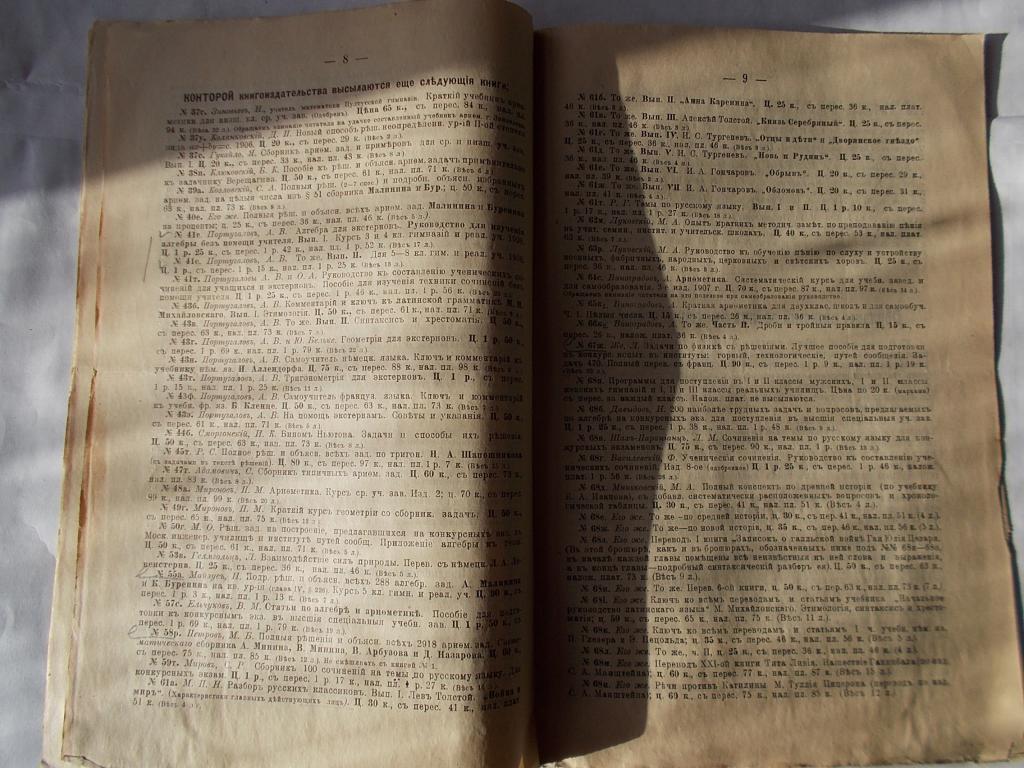 — 8 —
КОНТОРОЙ книгоиздательства высылаются еще слѣдующія книги:
№ 37с. Зиновьевъ, П., учитель математики Пултусской гимназіи. Краткій учебникъ ариѳ-
метики для низш. кл. ср. уч. зав. (Одобренъ). Цѣна 65 к., съ перес. 84 к., нал. пл.
94 к. (Вѣсъ 22 л.) Обращаемъ вниманіе читателя на удачно составленный учебникъ ариѳм.
Д. П. Новый способъ рѣш. неопредѣленн. ур-ій II-ой степени
1906. Ц. 20 к., съ перес. 29 к. (Вѣсъ 2 л.)
№ 37с. М. Сборникъ ариѳм. зад. и примѣровъ для ср. и низш. уч. зав.
Вып. I. Ц. 20 к., съ перес. 33 к., нал. пл. 43 к. (Вѣсъ 8 л.)
№ 38п. Клюковскій, Б. К. Пособіе къ рѣш. и объясн. ариѳм. задачъ примѣнительно
къ задачнику Верещагина. Ц. 50 к., съ перес. 61 к., нал. пл. 71 к. (Вѣсъ 6 л.)
№ 39а. Козловскій, С. А. Полныя рѣш. (2—7 спос.) и подробн. объясн. избранныхъ
ариѳм. зад. на цѣлыя числа изъ § 51 сборника Малинина и Бур.; ц. 50 к., съ перес.
63 к., нал. пл. 73 к. (Вѣсъ 8 л.)
№ 40е. Его же. Полныя рѣш. и объясн. всѣхъ ариѳм. зад. Малинина и Буренина
на проценты; ц. 25 к., съ перес. 36 к., нал. пл. 46 к. (Вѣсъ 5 л.)
№ 41е. Португаловъ, А. В. Алгебра для экстерновъ. Руководство для изученія
алгебры безъ помощи учителя. Вып. I. Курсъ 3 и 4 кл. гимназій и реал. уч. 1908.
Ц. 1 р. 25 к., съ перес. 1 р. 42 к., нал. пл. 1 р. 52 к. (Вѣсъ 17 л.)
№ 41с. Португаловъ, А. В. То же. Вып. II. Для 5—8 кл. гим. и реал. уч. 1908.
Ц. 1 р., съ перес. 1 р. 15 к., нал. пл. 1 р. 25 к. (Вѣсъ 13 л.)
№ 41т. Португаловы, А. В. и О. А. Руководство къ составленію ученическихъ со-
чиненій для учащихся и экстерновъ. Пособіе для изученія техники сочиненій безъ
помощи учителя. Ц. 1 р. 25 к., съ перес. 1 р. 46 к., нал. пл. 1 р. 56 к.
№ 43б. Португаловъ, А. В. Комментарій и ключъ къ латинской грамматикѣ М. и
Михайловскаго. Вып. I. Этимологія. Ц. 50 к., съ перес. 61 к., нал. пл. 71 к.
№ 43в. Португаловъ, А. В. То же. Вып. II. Синтаксисъ и хрестоматія. Ц. 50 к.,
съ перес. 63 к., нал. пл. 73 к. (Вѣсъ 7 л.)
№ 43г. Португаловъ, А. В. и Ю. Бельке. Геометрія для экстерновъ. Ц. 1 р. 50 к.,
съ перес. 1 р. 69 к., нал. пл. 1 р. 79 к. (Вѣсъ 22 л.)
№ 43н. Португаловъ, А. В. Самоучитель нѣмецк. языка. Ключъ и комментарій къ
учебнику нѣм. яз. И. Аллендорфа. Ц. 75 к., съ перес. 88 к., нал. пл. 98 к.
№ 43т. Португаловъ, А. В. Тригонометрія для экстерновъ. Ц. 1 р., съ перес.
1 р. 15 к., нал. пл. 1 р. 25 к. (Вѣсъ 11 л.)
№ 43ф. Португаловъ, А. В. Самоучитель француз. языка. Ключъ и комментарій
къ учебн. фр. яз. В. Кленце. Ц. 50 к., съ перес. 63 к., нал. пл. 73 к.
№ 43э. Португаловъ, А. В. На помощь экстернамъ. Совѣты и указанія. Ц. 50 к.,
съ перес. 61 к., нал. пл. 71 к. (Вѣсъ 6 л.)
№ 44б. Сморгонскій, И. К. Биномъ Ньютона. Задачи и способы ихъ рѣшенія.
Ц. 50 к., съ перес. 63 к., нал. пл. 73 к. (Вѣсъ 8 л.)
№ 45т. Р. С. Полное рѣш. и объясн. всѣхъ зад. по тригон. Н. А. Шапошникова
(съ задачами въ текстѣ рѣшенія). Ц. 80 к., съ перес. 97 к., нал. пл. 1 р. 7 к.
№ 47т. Адамовичъ, С. Сборникъ типичныхъ ариѳм. зад. Ц. 60 к., съ перес. 73 к.,
нал. пл. 83 к. (Вѣсъ 8 л.)
№ 48а. Мироновъ, П. М. Ариѳметика. Курсъ ср. уч. зав. Изд. 2; ц. 70 к., съ перес.
89 к., нал. пл. 99 к. (Вѣсъ 20 л.)
№ 49г. Мироновъ, П. М. Краткій курсъ геометріи со сборник. задачъ; Ц. 50 к.,
съ перес. 65 к., нал. пл. 75 к. (Вѣсъ 12 л.)
№ 50г. М. Ю. Рѣш. зад. на построеніе, предлагавшихся на конкурсныхъ экз. въ
Моск. инженер. училищѣ и институтѣ путей сообщ. Приложеніе алгебры къ геом.
Ц. 50 к., съ перес. 61 к., нал. пл. 71 к. (Вѣсъ 5 л.)
№ 53в. Гельмгольцъ, Г. Взаимодѣйствіе силъ природы. Перев. съ нѣмецк.
Ц. 25 к., съ перес. 36 к., нал. пл. 46 к. (Вѣсъ 5 л.)
№ 55а. П. Подр. рѣш. и объясн. всѣхъ 288 алгебр. зад. А. Малинина
и К. Буренина на кв. ур-ія (глава IV, § 226). Курсъ 5 кл. гимн. и реал. уч. Ц. 90 к., съ
перес. 1 р. 3 к., нал. пл. 1 р. 13 к. (Вѣсъ 8 л.)
№ 57с. Ельчуковъ, В. М. Статьи по алгебрѣ и ариѳметикѣ. Пособіе для подго-
товки къ конкурснымъ экз. въ высшія спеціальныя учебн. зав. Ц. 1 р. 50 к., съ
перес. 1 р. 69 к., нал. пл. 1 р. 79 к. (Вѣсъ 19 л.)
№ 58р. Петровъ, М. Б. Полныя рѣшенія и объясн. всѣхъ 2918 ариѳм. зад.
сборника А. Минина, В. Минина, В. Арбузова и Д. Назарова. Ц. 60 к.,
съ перес. 75 к., нал. пл. 85 к. (Вѣсъ 12 л.) Не смѣшивать съ книгой № 1.
№ 59т. Мировъ, С. Р. Сборникъ 100 сочиненій на темы по русскому языку. Для
конкурсныхъ экзам. Ц. 1 р., съ перес. 1 р. 17 к., нал. пл. 1 р. 27 к.
№ 61а. М. П. Н. Разборъ русскихъ классиковъ. Вып. I. Левъ Толстой. „Война и
миръ". (Характеристика главныхъ дѣйствующихъ лицъ). Ц. 30 к., съ перес. 41 к., нал. плат.
51 к. (Вѣсъ 5 л.)
— 9 —
№ 61б. То же. Вып. II. „Анна Каренина". Ц. 25 к., съ перес. 36 к., нал. плат.
46 к. (Вѣсъ 5 л.)
№ 61в. То же. Вып. III. Алексѣй Толстой. „Князь Серебряный". Ц. 25 к., съ перес.
36 к., нал. пл. 46 к. (Вѣсъ 5 л.)
№ 61г. То же. Вып. IV. И. С. Тургеневъ. „Отцы и дѣти" и „Дворянское гнѣздо"
Ц. 25 к., съ перес. 36 к., нал. пл. 46 к. (Вѣсъ 5 л.)
№ 61д. То же. Вып. V. И. С. Тургеневъ. „Новь и Рудинъ". Ц. 25 к., съ перес.
36 к., нал. пл. 46 к. (Вѣсъ 5 л.)
№ 61е. То же. Вып. VI. И. А. Гончаровъ. „Обрывъ". Ц. 20 к., съ перес. 29 к.,
нал. пл. 39 к.
№ 61ж. То же. Вып. VII. И. А. Гончаровъ. „Обломовъ". Ц. 20 к., съ перес. 31 к.,
нал. пл. 41 к.
№ 61т. Р. Г. Темы по русскому языку. Вып. I и II. Ц. 1 р. 10 к., съ перес.
1 р. 17 к., нал. пл. 1 р. 27 к.
№ 62п. М. А. Опытъ краткихъ методич. замѣт. по преподаванію пѣнія
въ учит. семин., инстит. и учительск. школахъ. Ц. 40 к., съ перес. 53 к., нал. плат.
63 к. (Вѣсъ 7 л.)
№ 63р. М. А. Руководство къ обученію пѣнію по слуху и устройству
военныхъ, фабричныхъ, народныхъ, церковныхъ и свѣтскихъ хоровъ. Ц. 25 к., съ
перес. 36 к., нал. пл. 46 к. (Вѣсъ 5 л.)
№ 64с. Виноградовъ, А. Ариѳметика. Систематическій курсъ для учебн. завед. и
для самообразованія. 3 изд. 1907 г. Ц. 70 к., съ перес. 87 к., нал. пл. 97 к.
Обращаемъ вниманіе читателя на это полезное при самообразованіи руководство.
№ 65к. Виноградовъ, А. Краткая ариѳметика для двухклас. школъ и для самообуч.
Ч. I. Цѣлыя числа. Ц. 15 к., съ перес. 26 к., нал. пл. 36 к.
№ 66к. Виноградовъ, А. То же. Часть II. Дроби и тройныя правила. Ц. 15 к., съ
перес. 26 к., налож. плат. 36 к. (Вѣсъ 4 л.)
№ 67ж. Задачи по физикѣ съ рѣшеніями. Лучшее пособіе для подготовки
къ конкурс. испыт. въ институты: горный, технологическіе, путей сообщенія. За-
дачъ 470. Полный перев. съ франц. Ц. 90 к., съ перес. 1 р. 9 к., нал. пл. 1 р. 19 к.
№ 68п. Программы для поступленія въ I и II классы мужскихъ, I и II классы
женскихъ гимназій и I и II классы реальныхъ училищъ. Цѣна по 20 к. (марками)
съ перес. за каждый классъ. Налож. плат. не высылаются.
№ 68б. Давыдовъ, Н. 200 наиболѣе трудныхъ задачъ и вопросовъ, предлагаемыхъ
по алгебрѣ на конкурсныхъ экз. для поступленія въ высшія спеціальныя уч. зав.
Ц. 1 р. 25 к., съ перес. 1 р. 38 к., нал. пл. 1 р. 48 к.
№ 68в. Л. М. Сочиненія на темы по русскому языку для кон-
курсныхъ экзаменовъ. Ц. 75 к., съ перес. 90 к., нал. пл. 1 р.
№ 68г. Ф. Ученическія сочиненія. Руководство къ составленію уче-
ническихъ сочиненій. Изд. 8-ое (одобренное). Ц. 1 р. 25 к., съ перес. 1 р. 46 к., налож.
плат. 1 р. 56 к.
№ 68д. М. А. Полный конспектъ по древней исторіи (по учебнику
К. А. Иванова), съ добавл. систематически расположенныхъ вопросовъ и хроноло-
гической таблицы. Ц. 30 к., съ перес. 41 к., нал. пл. 51 к. (Вѣсъ 4 л.)
№ 68е. Его же. То же—по средней исторіи, ц. 30 к., съ пер. 41 к., нал. пл. 51 к. (4 л.)
№ 68ж. Его же. То же—по новой исторіи, ц. 35 к., съ пер. 46 к., нал. пл. 56 к. (5 л.)
№ 68з. Его же. Переводъ I книги „Записокъ о галльской войнѣ Гая Юлія Цезаря.
(Въ этой брошюрѣ, какъ и въ брошюрахъ, обозначенныхъ ниже подъ
въ началѣ каждой главы помѣщены всѣ неизвѣстныя къ ней слова и выраженія,
а въ концѣ главы—подробный синтаксическій разборъ ея). Ц. 50 к., съ перес. 63 к.,
налож. плат. 73 к. (Вѣсъ 9 л.)
№ 68и. Его же. То же. Перев. 6-ой книги, ц. 50 к., съ пер. 63 к., нал. пл. 73 к. (7 л.)
№ 68і. Его же. Ключъ ко всѣмъ переводамъ и статьямъ учебника „Начальное
руководство латинскаго языка" М. Михайловскаго. Этимологія, синтаксисъ и хресто-
матія; ц. 50 к., съ перес. 65 к., нал. пл. 75 к. (Вѣсъ 11 л.)
№ 68к. Его же. Ключъ ко всѣмъ переводамъ и статьямъ I ч. учебн. нѣм. яз.
П. Глезера и Э. Пецольда; ц. 35 к., съ перес. 46 к., нал. пл. 56 к. (Вѣсъ 5 л.)
№ 68л. Его же. То же, ч. II, ц. 25 к., съ перес. 36 к., нал. пл. 46 к.
№ 68м. Его же. Переводъ XXI-ой книги Тита Ливія. Нашествіе Ганнибала
С. А. Манштейна); ц. 60 к., съ перес. 77 к., нал. пл. 87 к. (Вѣсъ 15 л.)
№ 68н. Его же. Рѣчи противъ Катилины М. Туллія Цицерона
С. А. Манштейна); ц. 60 к., съ перес. 75 к., нал. пл. 85 к. (Вѣсъ 12 л.)